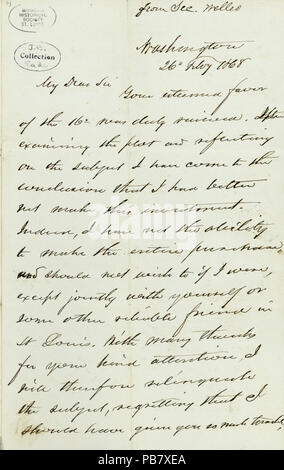 from Sec. Welles
MISSOURI
HISTORICAL
SOCIETY
ST. LOUIS
Collection
Washington
26" Feby 1868
My Dear Sir
Your esteemed favor
of the 16" was duly received. After
examining the plat and reflecting
on the subject I have come to the
conclusion that I had better
not make this investment.
Indeed, I have not the ability
to make the entire purchase
and should not wish to if I were,
except jointly with yourself or
some other reliable friend in
St Louis. With many thanks
for your kind attention, I
will therefore relinquish
the subject, regretting that I
should have given you so much trouble,
alamy
alamy
Image ID: PB7XEA
www.alamy.com